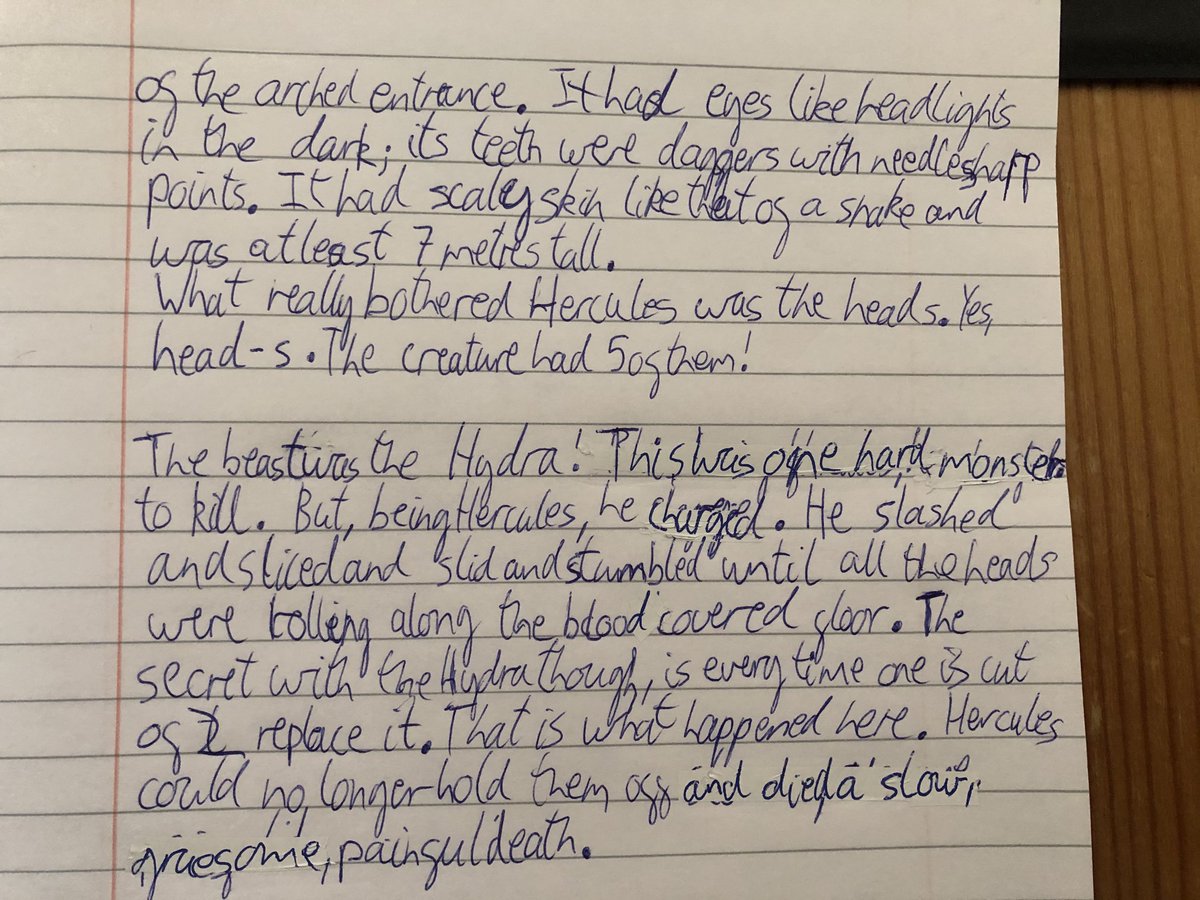 of the arched entrance. It had eyes like headlights
in the dark; its teeth were daggers with needle sharp
points. It had scaley skin like that of a snake and
was atleast 7 metres tall.
What really bothered Hercules was the heads. Yes,
head-s. The creature had 5 of them!
The beast was the Hydra! This was one hard monster
to kill. But, being Hercules, he charged. He slashed
and sliced and slid and stumbled until all the heads
were rolling along the blood covered floor. The
secret with the Hydra though, is every time one is cut
of 2 replace it. That is what happened here. Hercules
could no longer hold them off and died a slow,
gruesome, painful death.